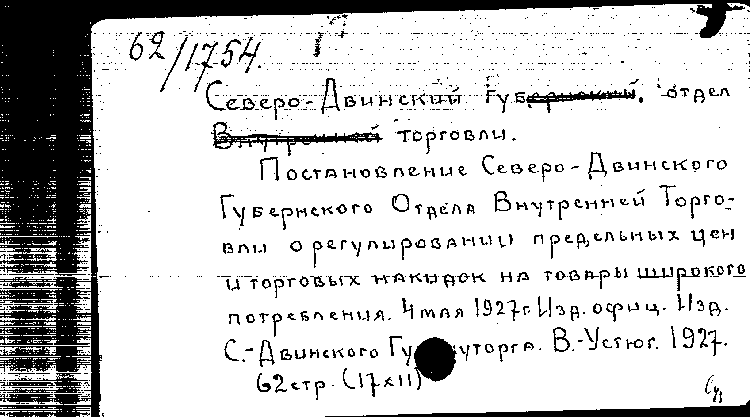 62/1754.
Северо-Двинский губернский. отдел
Внутренней торговли.
Постановление Северо-Двинского
Губернского Отдела Внутренней Торго-
вли о регулировании предельных цен
и торговых накидок на товары широкого
потребления. 4 мая 1927г. Изд. офиц. Изд.
С.-Двинского В.-Устюг. 1927.
62 стр. (17х11)